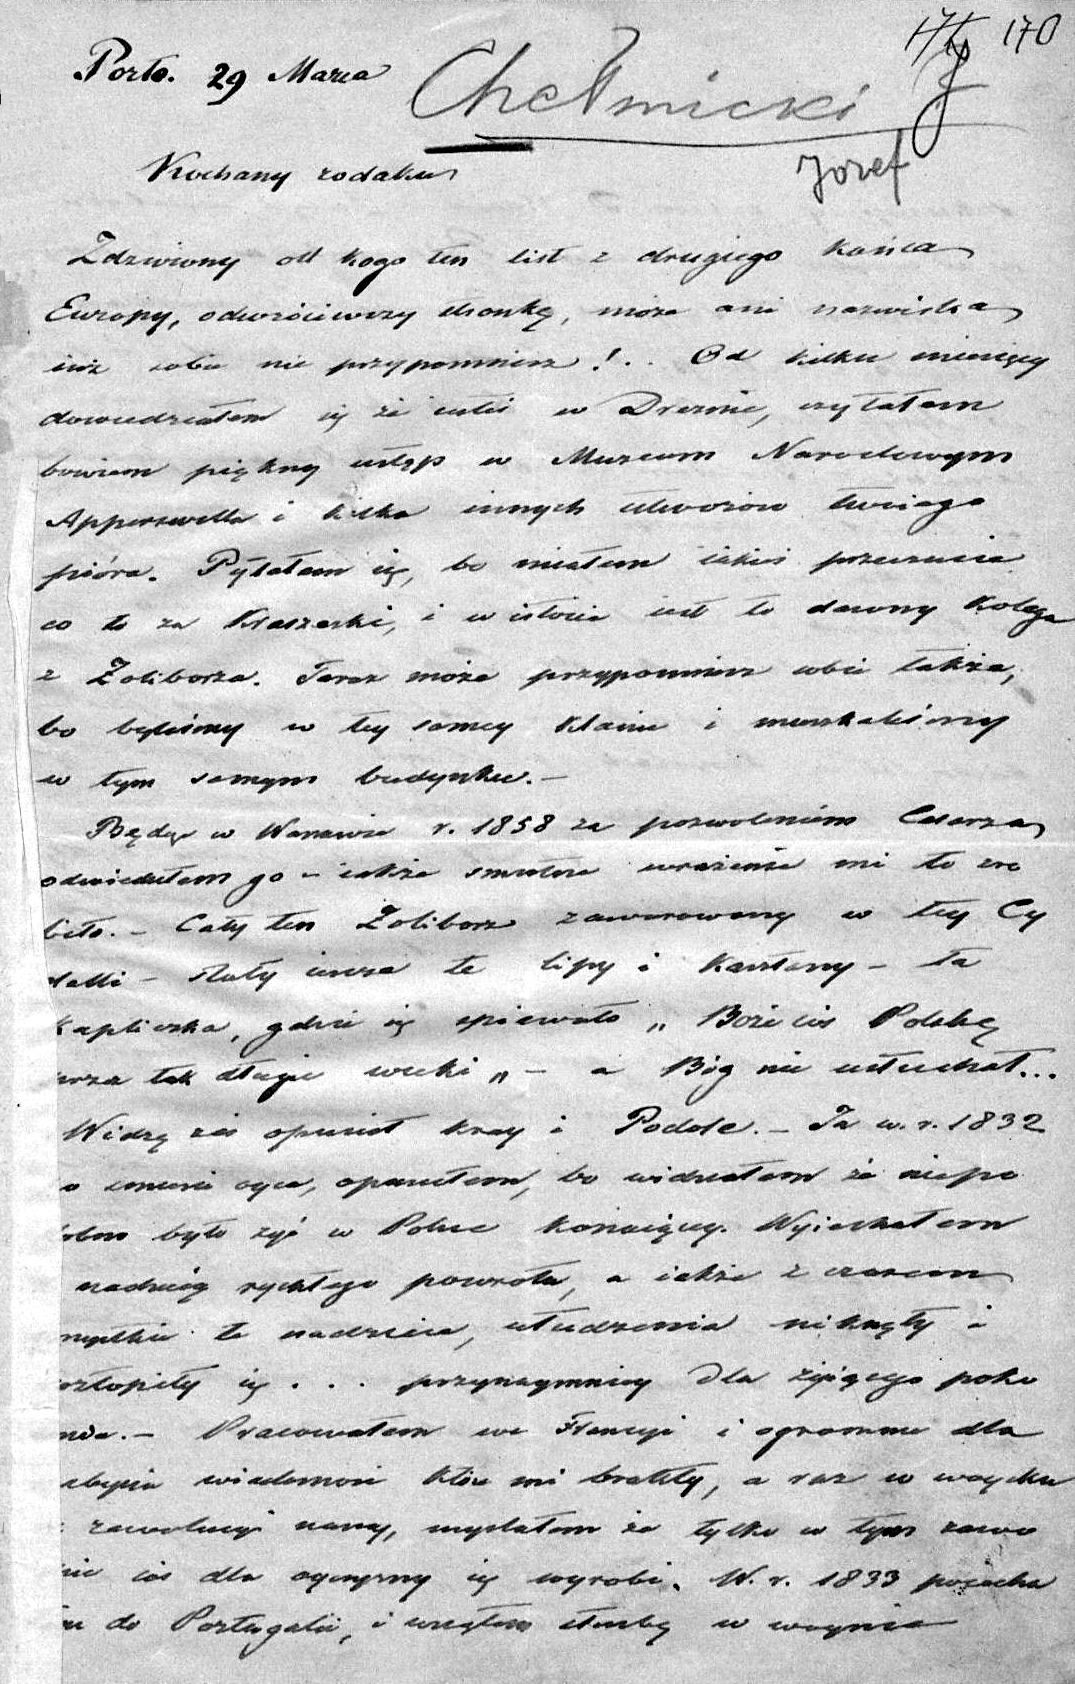 170
Porto. 29 Marca
Chełmicki
Jozef
Kochany rodaku
Zdziwiony od kogo ten list z drugiego końca
Europy, odwróciwszy stronkę, może ani nazwiska
iuż sobie nie przypomnisz!.. Od kilku miesięcy
dowiedziałem się że iesteś w Dreznie, czytałem
bowiem piękny ustęp w Muzeum Narodowym
Apperswilla i kilka innych utworów twoiego
pióra. Pytałem się, bo miałem iakieś przeczucie
co to za Kraszeski, i w istocie iest to dawny Kolega
z Żoliborza. Teraz może przypomnisz sobie także,
bo byliśmy w tey samey klasie i mieszkaliśmy
w tym samym budynku. –
Będąc w Warszawie r. 1858 za pozwoleniem Cesarza
odwiedziłem go – iakże smutne wrażenie mi to zro
biło. – Cały ten Żoliborz zawarowany w tey Cy
delli – stały ieszcze te lipy i kasztany – ta
kapliczka, gdzie się spiewało „ Boże coś Polskę
przez tak długie wieki „ – a Bóg nie usłuchał...
Widzę żeś opuścił kray i Podole. – Ja w. r. 1832
po śmierci oyca, opuściłem, bo widziałem że niepo
dobno było żyć w Polsce konaiącey. Wyiechałem
nadzieią rychłego powrotu, a iakże z czasem
wszystkie te nadzieie, złudzenia niknęły i
roztopiły się . . . przynaymniey dla żyiącego poko
lenia. – Pracowałem we Francyi i ogromnie dla
nabycia wiadomości które mi brakły, a raz w woysku
z rewolucyi naszey, myslałem że tylko w tym zawo
dzie coś dla oyczyzny się wyrobi. W. r. 1833 poiecha
łem do Portugalii, i wziąłem służbę w woynie